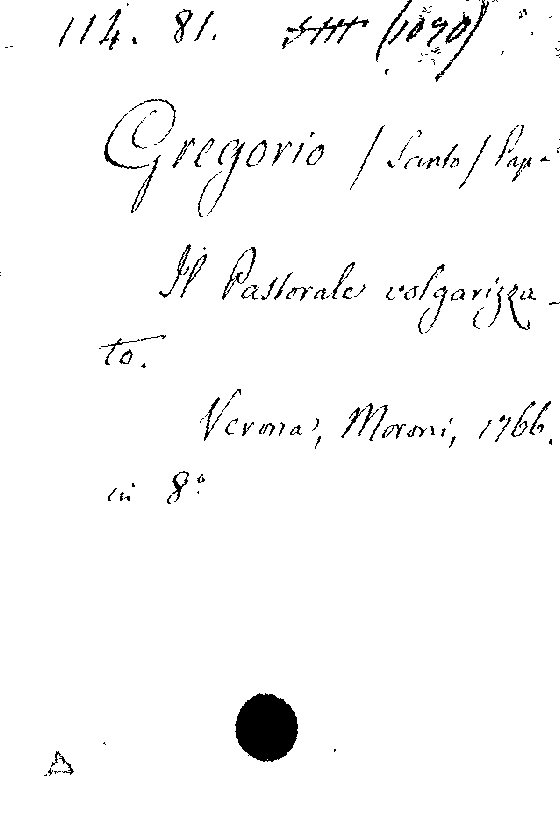 114. 81. (1090)
Gregorio / Santo / Papa
Il Pastorale volgarizza-
to.
Verona, Moroni, 1766.
in 8°